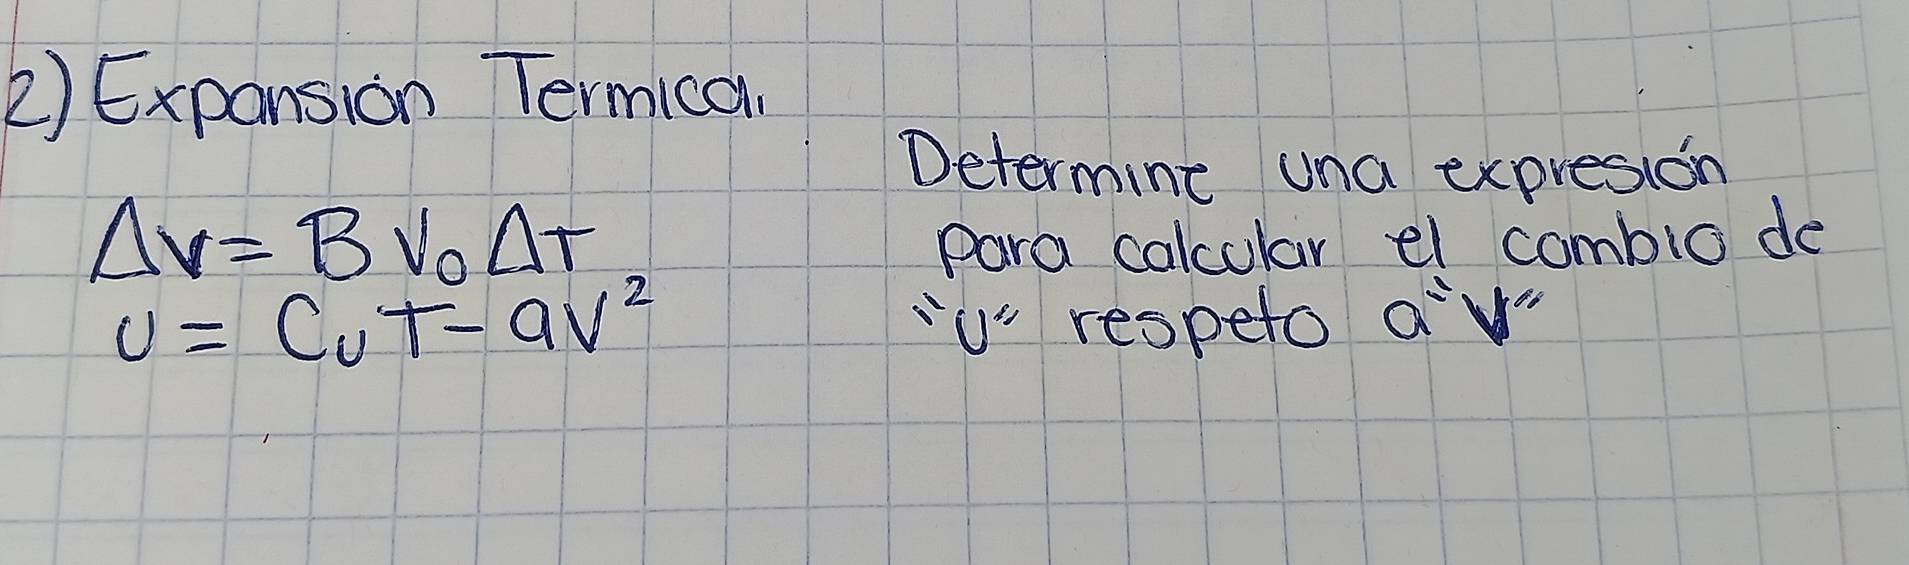 2) Expansión Termica.
ΔV = B V₀ ΔT
U = CᵤT - aV²
Determine una expresión
para calcular el cambio de
"U" respeto a "V"